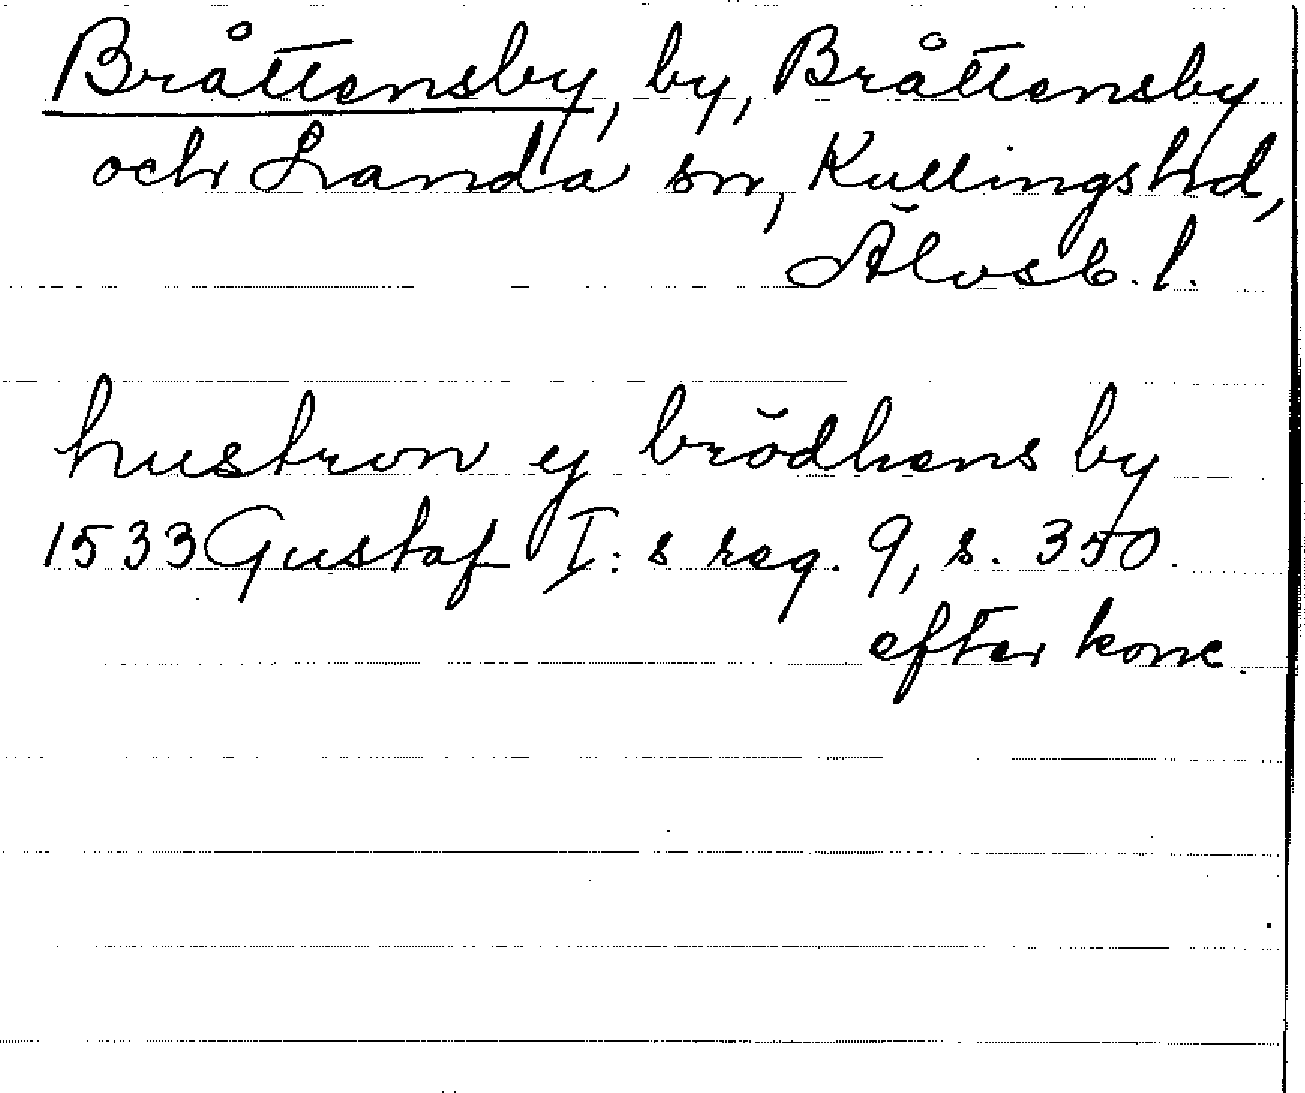 Bråttensby, by, Bråttensby
och Landa sn, Kullings hd,
Älvsb. l.
hustron ej brödhens by
1533 Gustaf I:s reg. 9, s. 350.
efter konc.